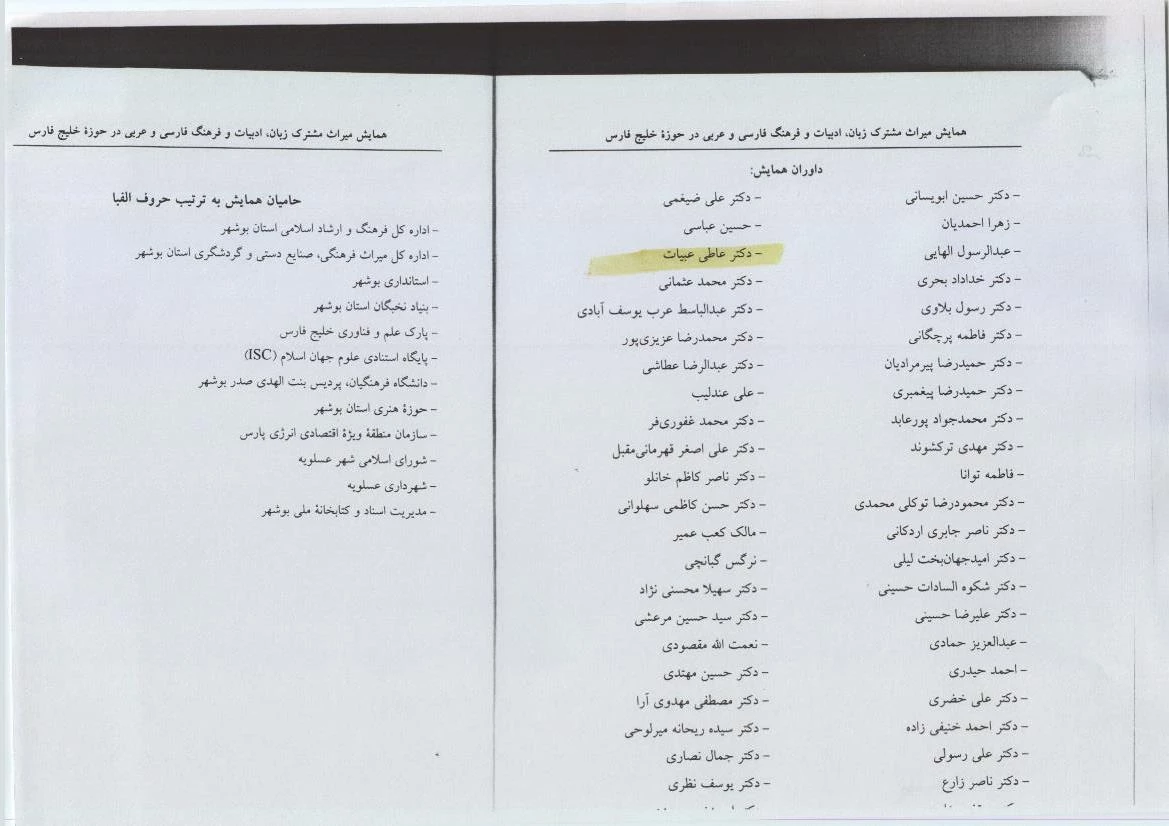 همایش میراث مشترک زبان، ادبیات و فرهنگ فارسی و عربی در حوزهٔ خلیج فارس
داوران همایش:
- دکتر حسین ابویسانی
- زهرا احمدیان
- عبدالرسول الهایی
- دکتر خداداد بحری
- دکتر رسول بلاوی
- دکتر فاطمه پرچگانی
- دکتر حمیدرضا پیرمرادیان
- دکتر حمیدرضا پیغمبری
- دکتر محمدجواد پورعابد
- دکتر مهدی ترکشوند
- فاطمه توانا
- دکتر محمودرضا توکلی محمدی
- دکتر ناصر جابری اردکانی
- دکتر امیدجهان‌بخت لیلی
- دکتر شکوه السادات حسینی
- دکتر علیرضا حسینی
- عبدالعزیز حمادی
- احمد حیدری
- دکتر علی خضری
- دکتر احمد خنیفی زاده
- دکتر علی رسولی
- دکتر ناصر زارع
- دکتر علی ضیغمی
- حسین عباسی
- دکتر عاطی عبیات
- دکتر محمد عثمانی
- دکتر عبدالباسط عرب یوسف آبادی
- دکتر محمدرضا عزیزی‌پور
- دکتر عبدالرضا عطاشی
- علی عندلیب
- دکتر محمد غفوری‌فر
- دکتر علی اصغر قهرمانی‌مقبل
- دکتر ناصر کاظم خانلو
- دکتر حسن کاظمی سهلوانی
- مالک کعب عمیر
- نرگس گبانچی
- دکتر سهیلا محسنی نژاد
- دکتر سید حسین مرعشی
- نعمت الله مقصودی
- دکتر حسین مهتدی
- دکتر مصطفی مهدوی آرا
- دکتر سیده ریحانه میرلوحی
- دکتر جمال نصاری
- دکتر یوسف نظری
همایش میراث مشترک زبان، ادبیات و فرهنگ فارسی و عربی در حوزهٔ خلیج فارس
حامیان همایش به ترتیب حروف الفبا
- اداره کل فرهنگ و ارشاد اسلامی استان بوشهر
- اداره کل میراث فرهنگی، صنایع دستی و گردشگری استان بوشهر
- استانداری بوشهر
- بنیاد نخبگان استان بوشهر
- پارک علم و فناوری خلیج فارس
- پایگاه استنادی علوم جهان اسلام (ISC)
- دانشگاه فرهنگیان، پردیس بنت الهدی صدر بوشهر
- حوزهٔ هنری استان بوشهر
- سازمان منطقهٔ ویژهٔ اقتصادی انرژی پارس
- شورای اسلامی شهر عسلویه
- شهرداری عسلویه
- مدیریت اسناد و کتابخانهٔ ملی بوشهر